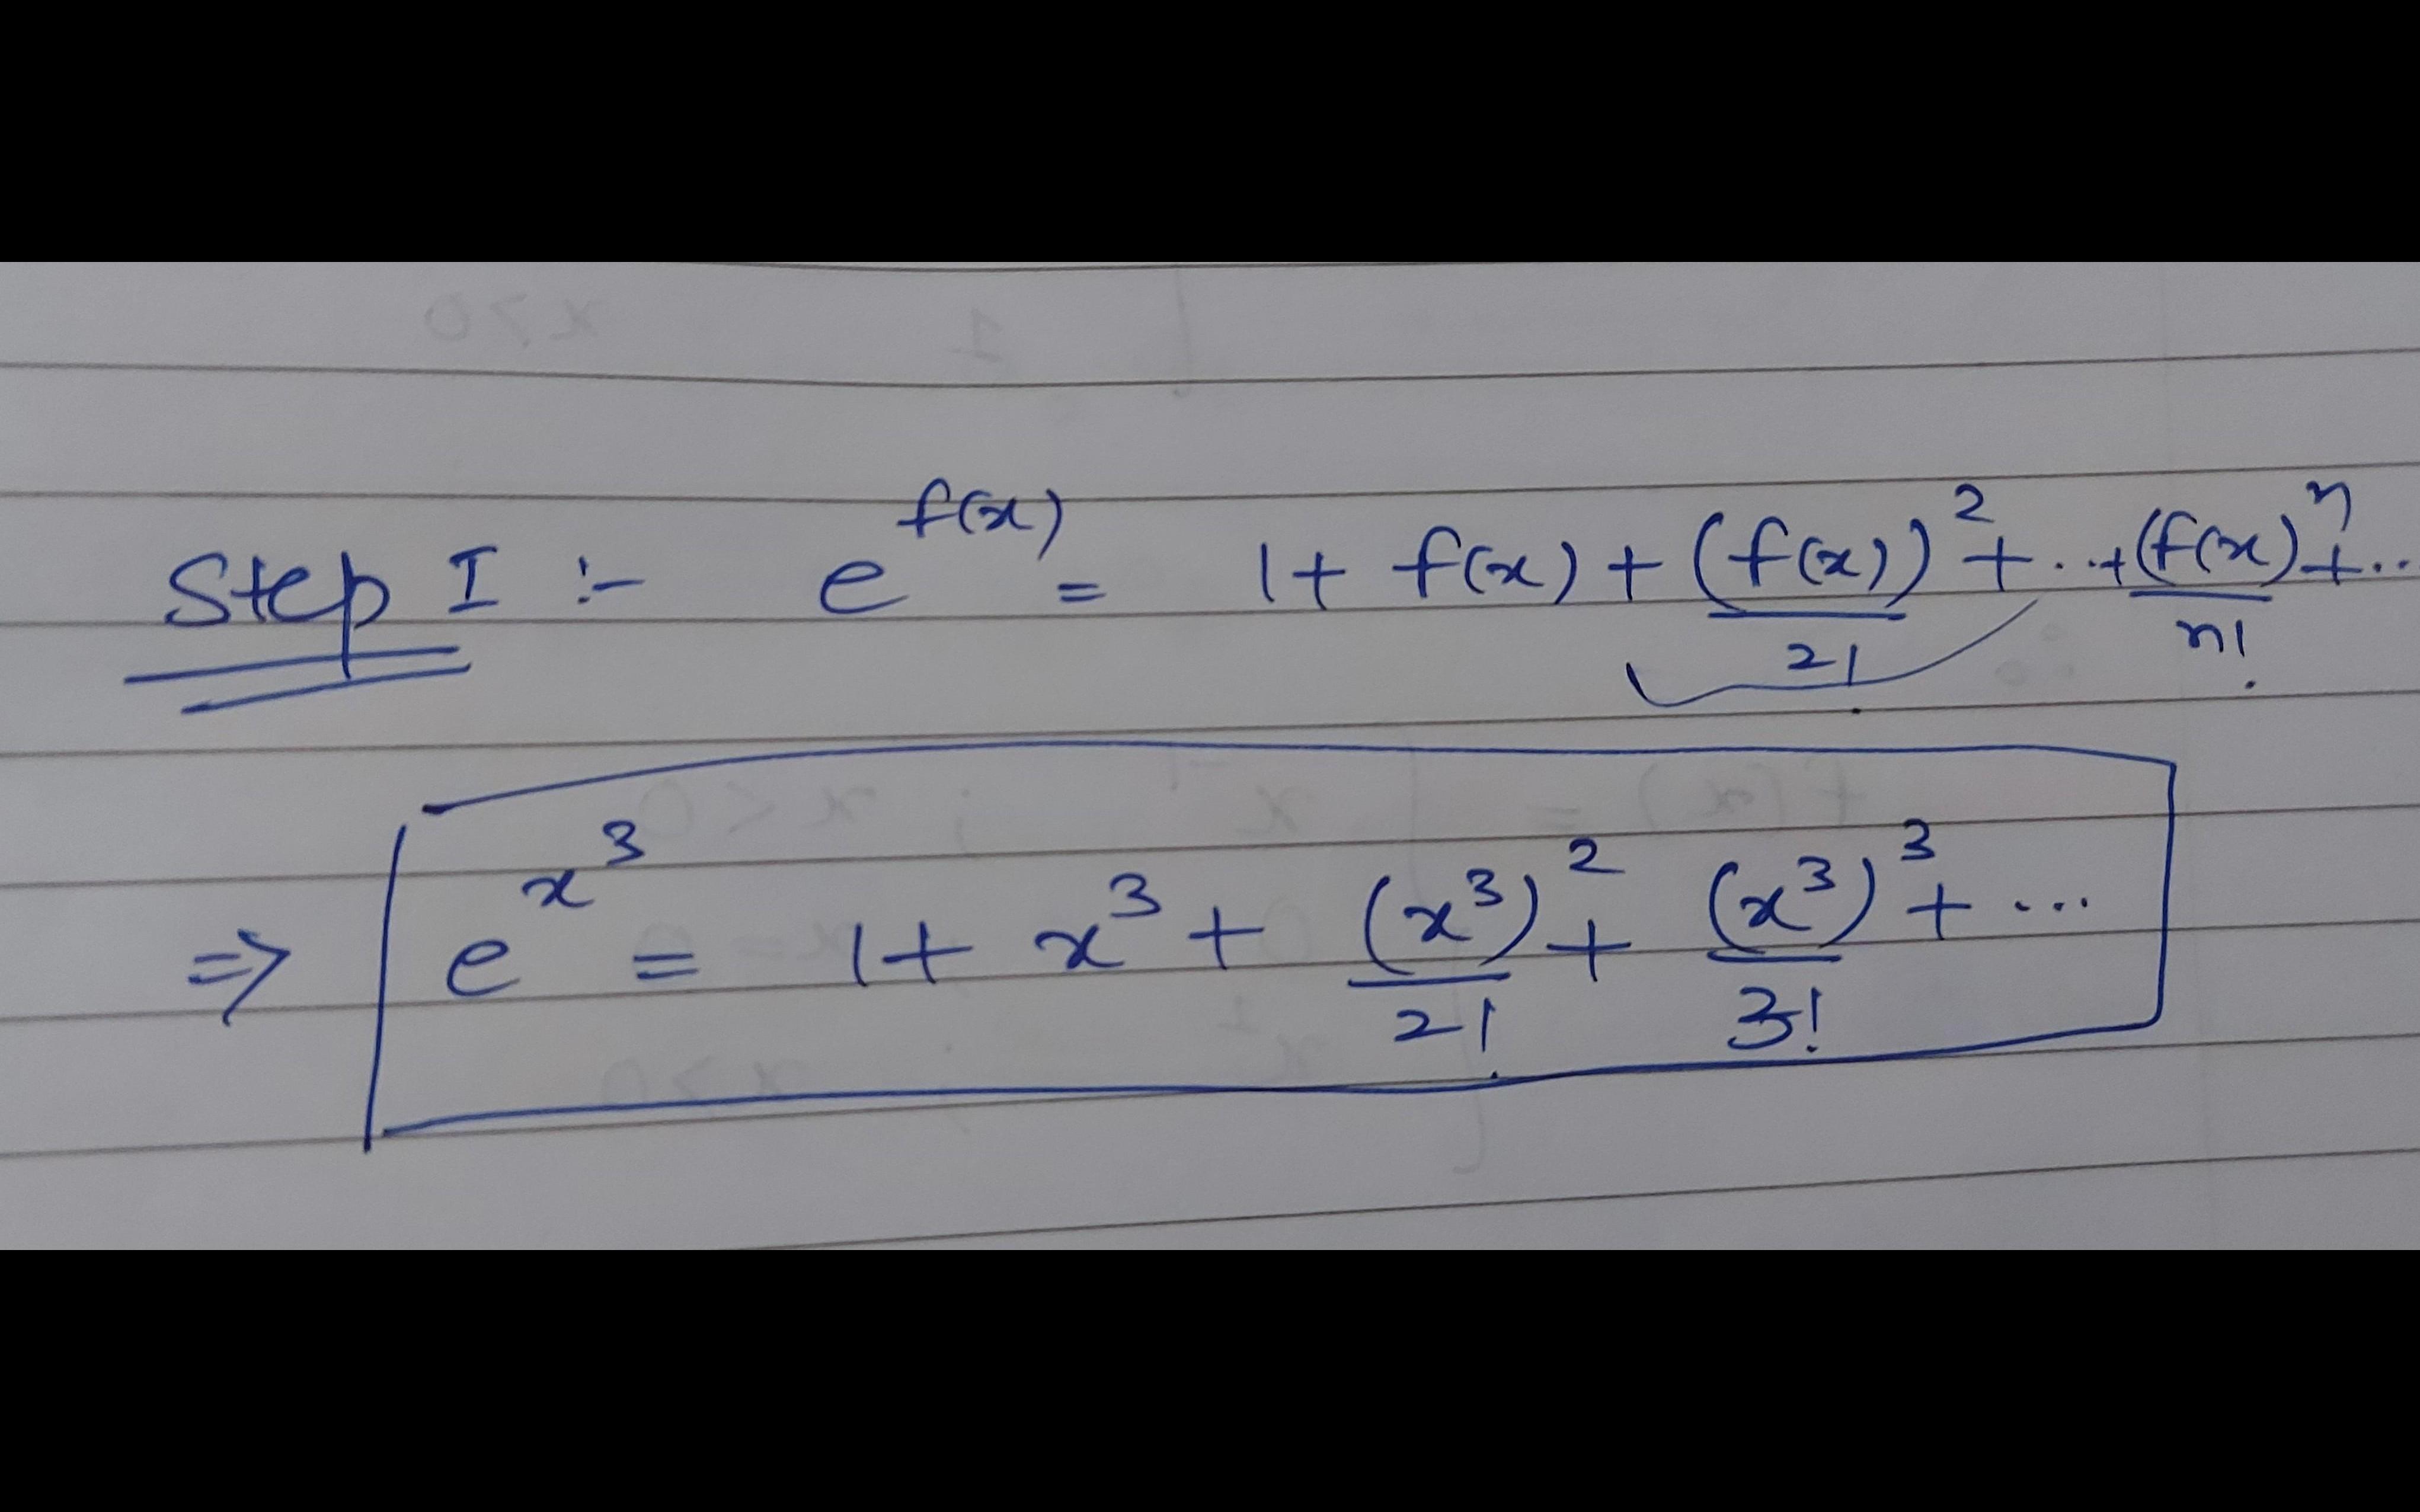 Step I :- e^{f(x)} = 1 + f(x) + (f(x))^2/2! + .. + (f(x)^n/n! + ..
⇒ e^{x^3} = 1 + x^3 + (x^3)^2/2! + (x^3)^3/3! + ...